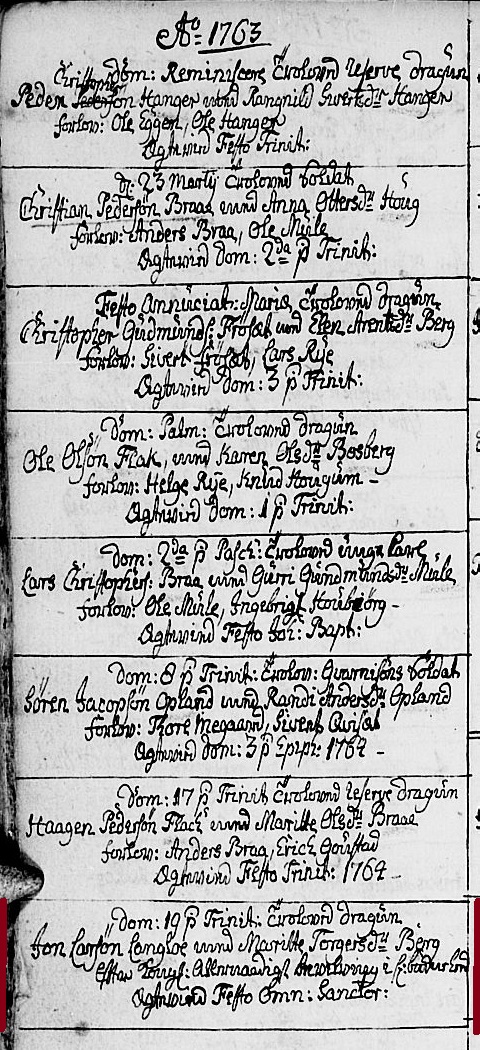 Ao 1763
Dom: Reminiscere Trolowed reserve dragun
Peder Christophersøn Hanger und Rangnild Sivertsdtr Hanger
forlov: Ole Eggen, Ole Hanger
Ægtewied Festo Trinit:
d: 23 Martij Trolowed Soldat
Christian Pedersøn Braa und Anna Ottersdtr Houg
forlov: Anders Braa, Ole Mule
Ægtewied dom: 2da p Trinit:
Festo Annuciat: Mariæ Trolowed dragun
Christopher Gudmunds: Frøset und Elen Arentsdtr Berg
forlov: Sivert Frøset, Lars Rye
Ægtewied Dom: 3 p Trinit:
Dom: Palm: Trolowed dragun
Ole Olsøn Flak, und Karen Olsdtr Bosberg
forlov: Helge Rye, Knud Hougum -
Ægtewied Dom: 1 p Trinit:
dom: 2da p Pasch: Trolowed unge Karl
Lars Christophers: Braa und Gurri Gundmundsdtr Mule
forlov: Ole Mule, Ingebrigt
Ægtewied Festo Joi: Bapt:
dom: 8 p Trinit: Trolov: Guarnisons Soldat
Søren Jacopsøn Opland und Randi Andersdtr Opland
forlov: Tore Megaard, Sivert Quisæt
Ægtewied dom: 3 p Epip: 1764 -
Dom: 17 p Trinit Trolowed reserve dragun
Haagen Pedersøn Flach und Maritte Olsdtr Braaa
forlov: Anders Braa, Erich
Ægtewied Festo Trinit: 1764 -
Dom: 19 p Trinit: Trolowed dragun
Jon Larsøn Langloe und Maritte Torgersdtr Berg
efter Kongl: Allernaadigst
Ægtewied Festo Omn: Sanctor: